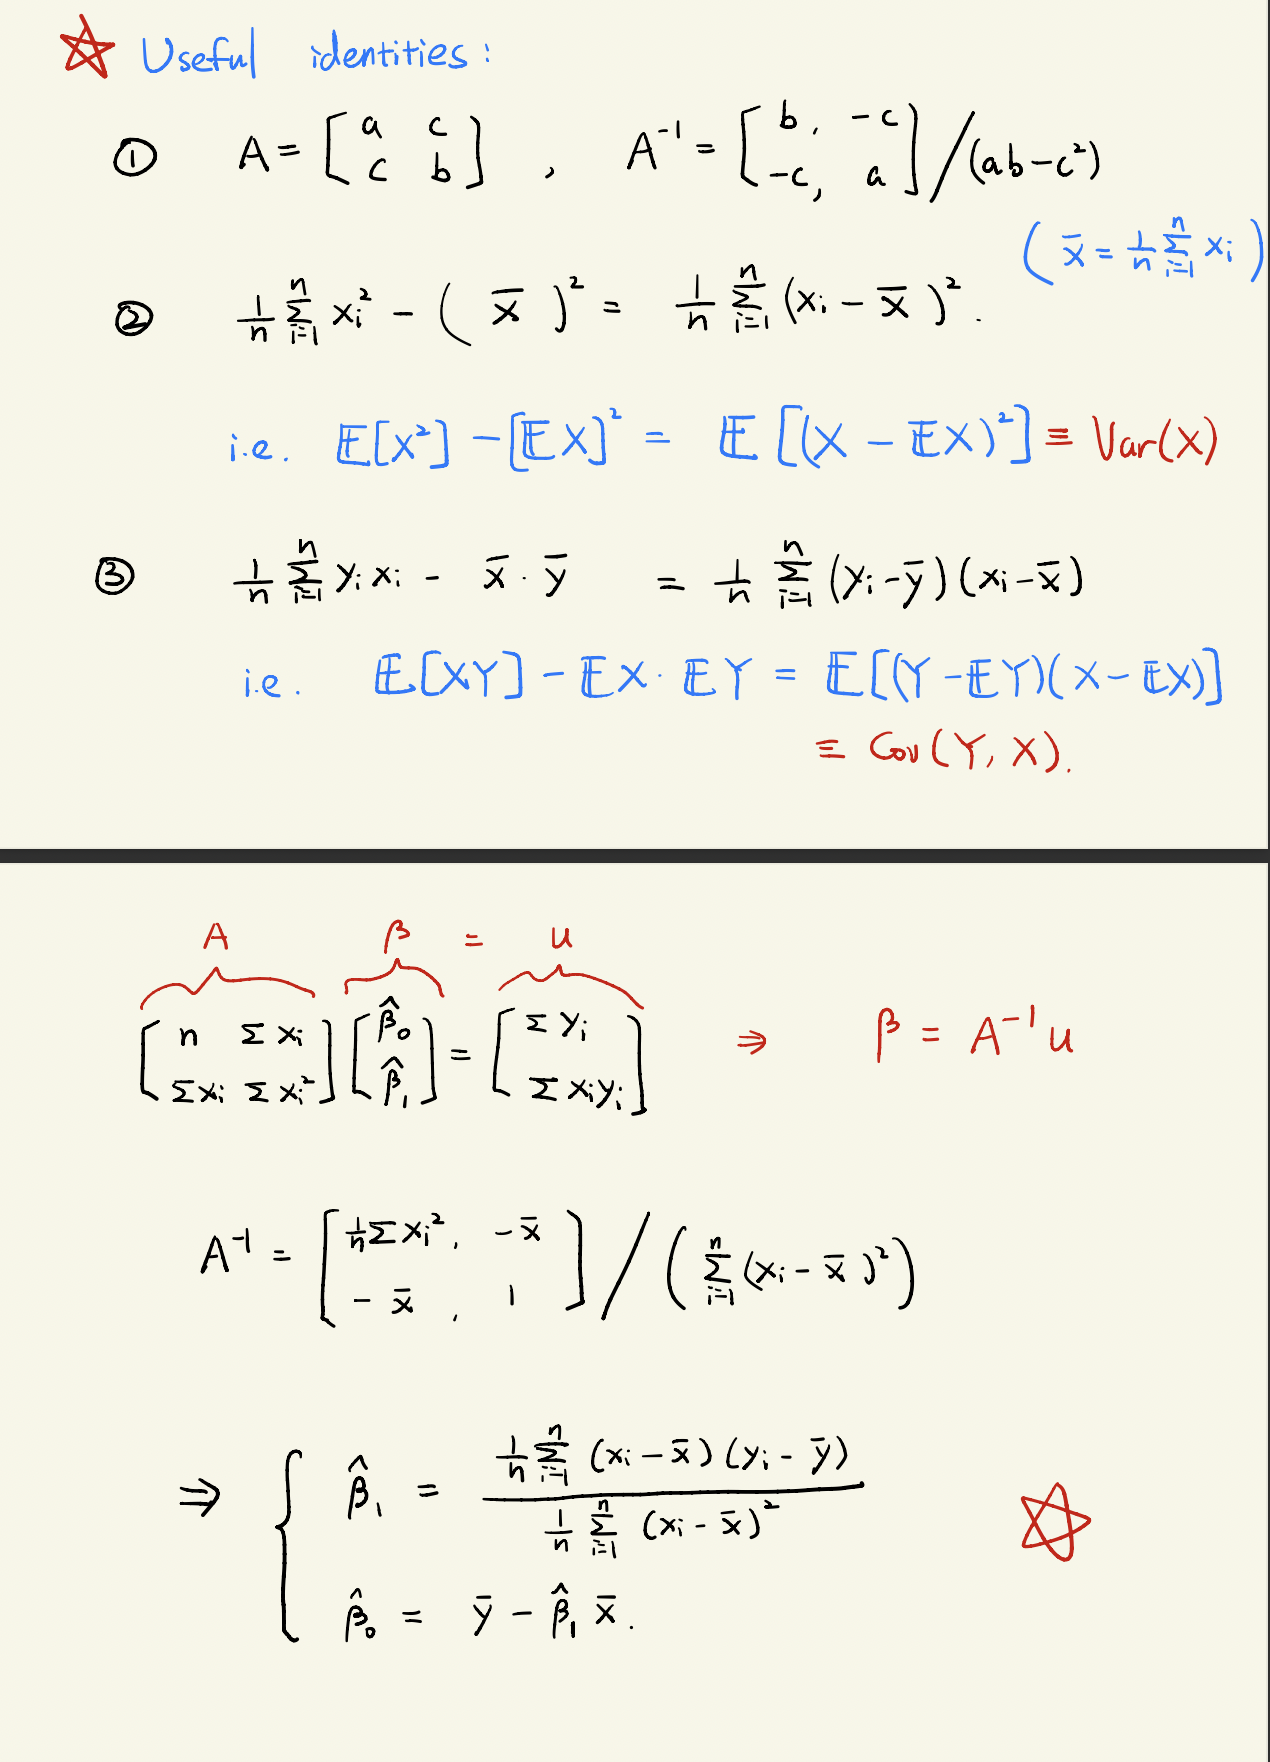 ☆ Useful identities:
① A = [a c; c b] , A⁻¹ = [b, -c; -c, a] / (ab-c²)
( x̄ = 1/n Σ_{i=1}^{n} xᵢ )
② 1/n Σ_{i=1}^{n} xᵢ² - ( x̄ )² = 1/n Σ_{i=1}^{n} (xᵢ - x̄ )² .
i.e. 𝔼[X²] - [𝔼X]² = 𝔼[(X - 𝔼X)²] ≡ Var(X)
③ 1/n Σ_{i=1}^{n} yᵢ xᵢ - x̄ · ȳ = 1/n Σ_{i=1}^{n} (yᵢ-ȳ)(xᵢ-x̄)
i.e. 𝔼[XY] - 𝔼X · 𝔼Y = 𝔼[(Y-𝔼Y)(X-𝔼X)]
≡ Cov(Y, X).
A β = u
[n Σxᵢ; Σxᵢ Σxᵢ²] [β̂₀; β̂₁] = [Σyᵢ; Σxᵢyᵢ] ⇒ β = A⁻¹u
A⁻¹ = [1/n Σxᵢ², -x̄; -x̄, 1] / ( Σ_{i=1}^{n} (xᵢ - x̄ )² )
⇒ { β̂₁ = (1/n Σ_{i=1}^{n} (xᵢ - x̄)(yᵢ - ȳ)) / (1/n Σ_{i=1}^{n} (xᵢ - x̄)²) ☆
β̂₀ = ȳ - β̂₁ x̄ .